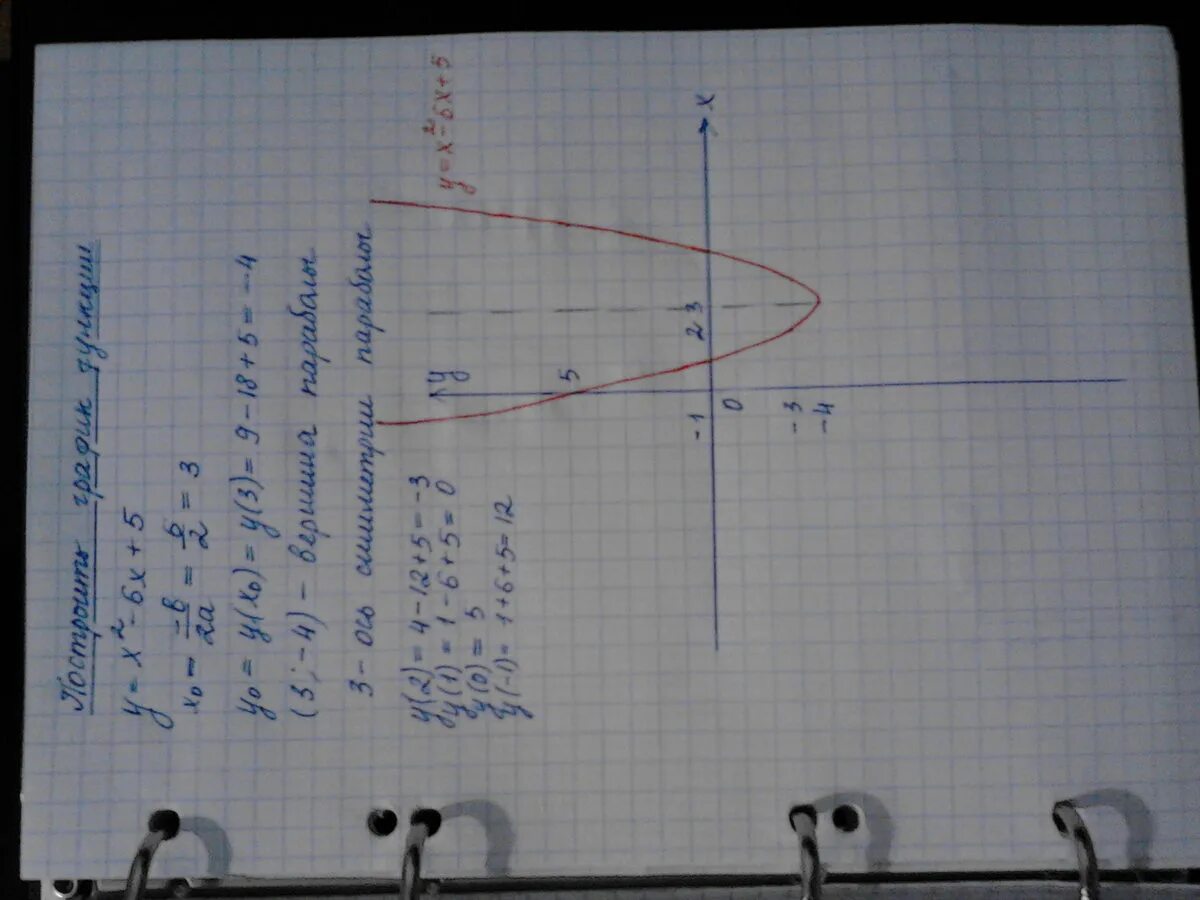 Построить график функции
y = x² - 6x + 5
x₀ = -b/2a = 6/2 = 3
y₀ = y(x₀) = y(3) = 9 - 18 + 5 = -4
(3; -4) - вершина параболы
3 - ось симметрии параболы
y(2) = 4 - 12 + 5 = -3
y(1) = 1 - 6 + 5 = 0
y(0) = 5
y(-1) = 1 + 6 + 5 = 12
y = x² - 6x + 5
y
5
-1 2 3 x
0
-3
-4